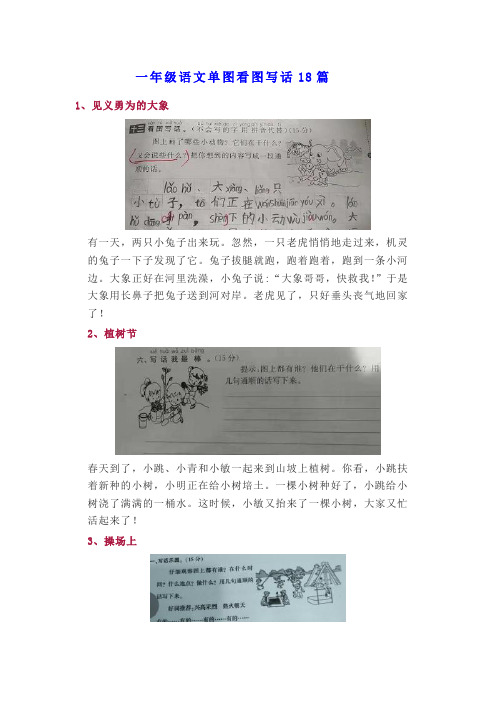 一年级语文单图看图写话18篇
1、见义勇为的大象
十三、看图写话。(不会写的字用拼音代替)(15分)
图上画了哪些小动物?它们在干什么?
又会说些什么?把你想到的内容写成一段通
顺的话。
lǎo hǔ、大xiàng、liǎng只
小tù子,tā们正在
下的小动wù
有一天,两只小兔子出来玩。忽然,一只老虎悄悄地走过来,机灵
的兔子一下子发现了它。兔子拔腿就跑,跑着跑着,跑到一条小河
边。大象正好在河里洗澡,小兔子说:“大象哥哥,快救我!”于是
大象用长鼻子把兔子送到河对岸。老虎见了,只好垂头丧气地回家
了!
2、植树节
xiě huà wǒ zuì bàng
六、写话我最棒。(15分)
提示:图上都有谁?他们在干什么?用
几句通顺的话写下来。
春天到了,小跳、小青和小敏一起来到山坡上植树。你看,小跳扶
着新种的小树,小明正在给小树培土。一棵小树种好了,小跳给小
树浇了满满的一桶水。这时候,小敏又抬来了一棵小树,大家又忙
活起来了!
3、操场上
一、写话乐园。(15分)
仔细观察图上都有谁?在什么时
间?什么地点?做什么?用几句通顺的
话写下来。
好词推荐:兴高采烈 热火朝天
有的……有的……有的……有的……